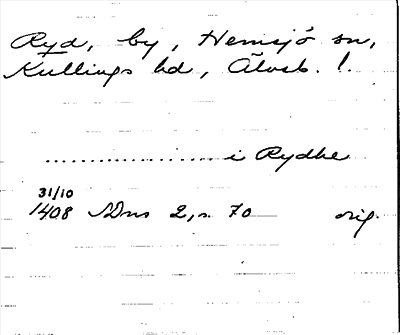 Ryd, by, Hemsjö sn,
Kullings hd, Älvsb. l.
.......................... i Rydhe
31/10
1408 SDns 2, s. 70 orig.